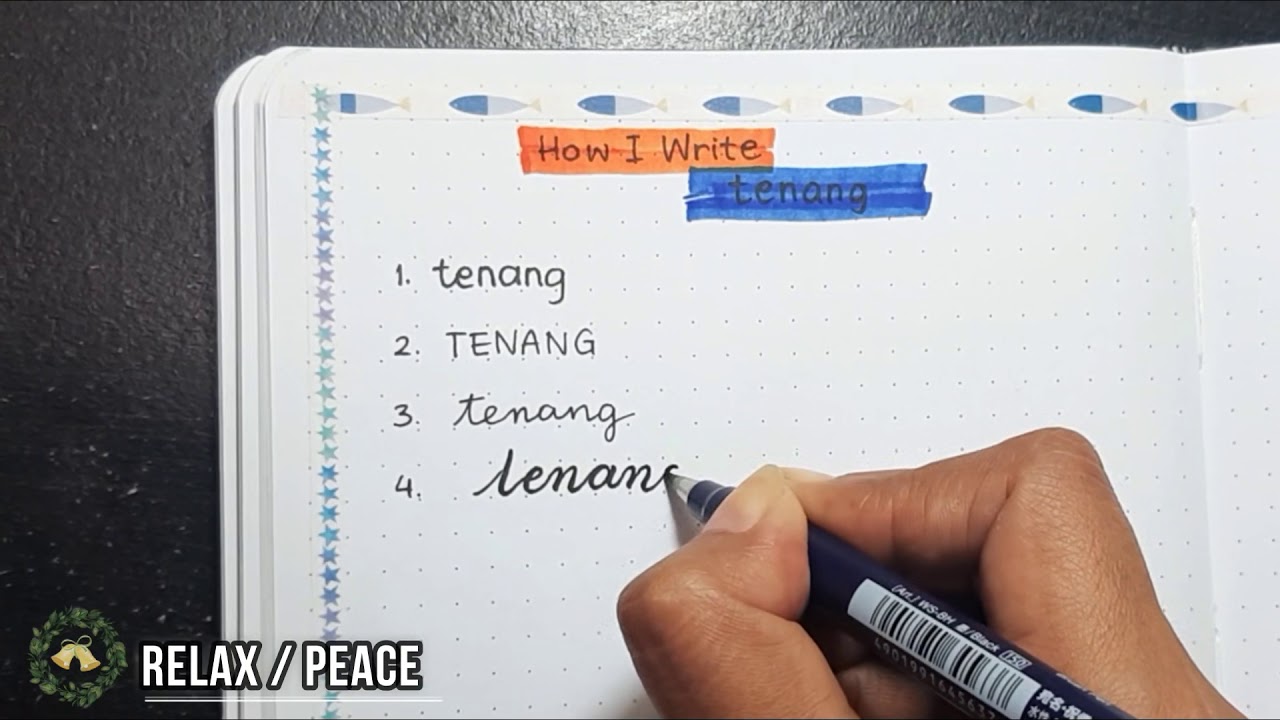 How I Write
tenang
1. tenang
2. TENANG
3. tenang
4. tenang
(Art.) WS-BH
/Black 150
4901991645637
RELAX / PEACE